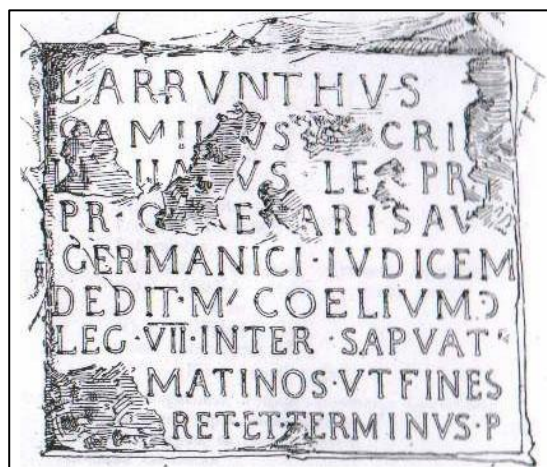 LARRVNTHVS
CRI
LE PR
PR· ARISAV
GERMANICI·IVDICEM
DEDIT·M' COELIVM Ɔ
LEG·VII·INTER·SAPVAT
MATINOS·VTFINES
RET·ET·TERMINVS·P